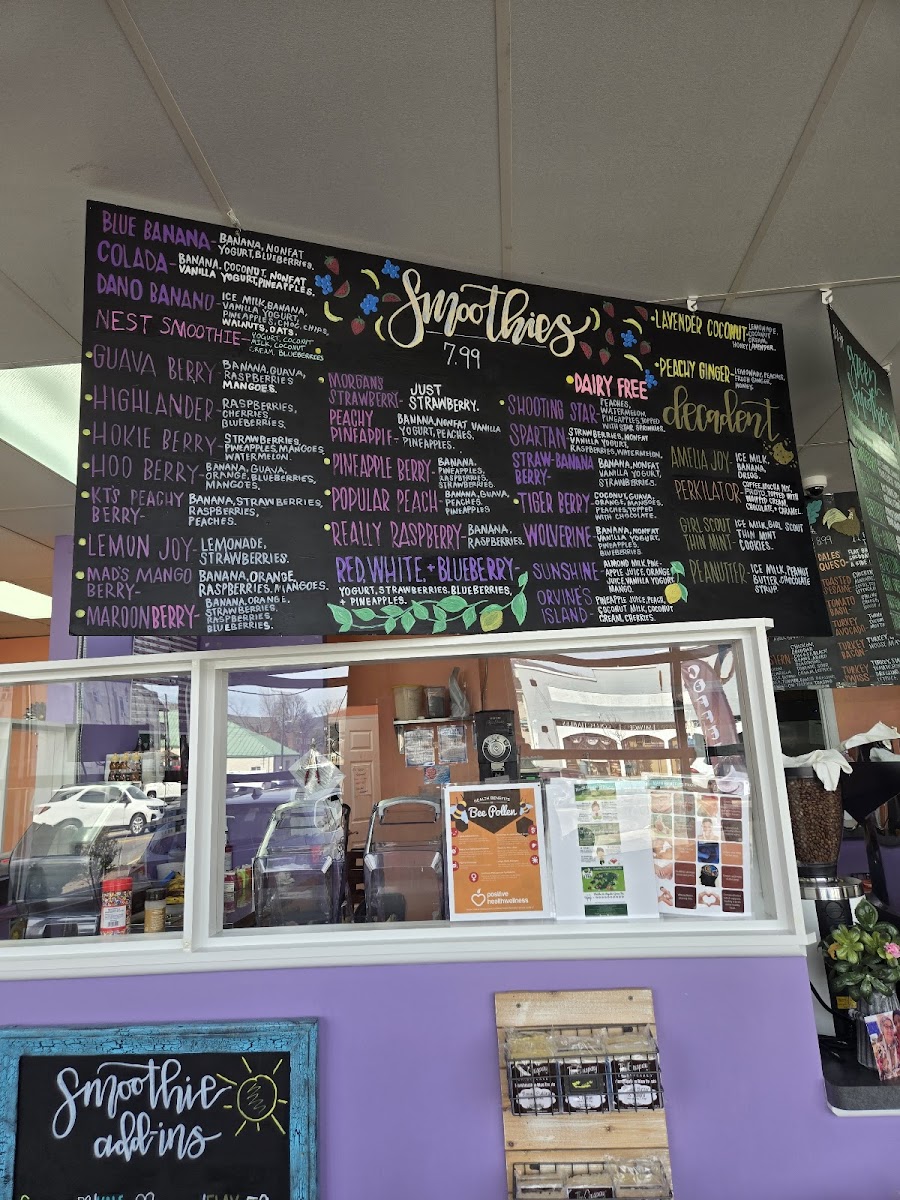 Smoothies
7.99
BLUE BANANA- BANANA, NONFAT
YOGURT, BLUEBERRIES.
COLADA- BANANA, COCONUT, NONFAT
VANILLA YOGURT, PINEAPPLES.
DANO BANANO- ICE MILK, BANANA,
VANILLA YOGURT,
PINEAPPLES, CHOC. CHIPS,
WALNUTS, OATS.
NEST SMOOTHIE- YOGURT, COCONUT
MILK, COCONUT
CREAM, BLUEBERRIES
GUAVA BERRY- BANANA, GUAVA,
RASPBERRIES
MANGOES.
HIGHLANDER- RASPBERRIES,
CHERRIES
BLUEBERRIES.
HOKIE BERRY- STRAWBERRIES,
PINEAPPLES, MANGOES
WATERMELON.
HOO BERRY- BANANA, GUAVA,
ORANGE, BLUEBERRIES,
MANGOES.
KT'S PEACHY
BERRY-
BANANA, STRAWBERRIES
RASPBERRIES,
PEACHES.
LEMUN JOY- LEMONADE,
STRAWBERRIES.
MAD'S MANGO
BERRY-
BANANA, ORANGE,
RASPBERRIES, MANGOES.
MAROONBERRY- BANANA, ORANGE,
STRAWBERRIES,
RASPBERRIES,
BLUEBERRIES.
MORGAN'S
STRAWBERRY-
JUST
STRAWBERRY.
PEACHY
PINEAPPLE-
BANANA, NONFAT VANILLA
YOGURT, PEACHES,
PINEAPPLES.
PINEAPPLE BERRY- BANANA,
PINEAPPLES,
RASPBERRIES,
STRAWBERRIES.
POPULAR PEACH- BANANA, GUAVA,
PEACHES
PINEAPPLES
REALLY RASPBERRY- BANANA,
RASPBERRIES.
RED, WHITE, + BLUEBERRY-
YOGURT, STRAWBERRIES, BLUEBERRIES,
+ PINEAPPLES.
DAIRY FREE
SHOOTING STAR- PEACHES,
WATERMELON,
PINEAPPLES, TOPPED
WITH STAR SPRINKLES.
SPARTAN- STRAWBERRIES, NONFAT
VANILLA YOGURT,
RASPBERRIES, WATERMELON.
STRAW-BANANA
BERRY-
BANANA, NONFAT,
VANILLA YOGURT,
STRAWBERRIES.
TIGER BERRY- COCONUT, GUAVA,
ORANGE, MANGOES,
PEACHES, TOPPED
WITH CHOCOLATE.
WOLVERINE- BANANA, NONFAT
VANILLA YOGURT,
PINEAPPLES,
BLUEBERRIES
SUNSHINE- ALMOND MILK, PINE-
APPLE JUICE, ORANGE
JUICE, VANILLA YOGURT
MANGO.
ORVINES
ISLAND-
PINEAPPLE JUICE, PEACH,
COCONUT MILK, COCONUT
CREAM, CHERRIES.
LAVENDER COCONUT- LEMONADE,
COCONUT
CREAM,
HONEY LAVENDER.
PEACHY GINGER- LEMONADE, PEACHES,
FRESH GINGER,
HONEY.
decadent
AMELIA JOY- ICE MILK,
BANANA,
OREOS.
PERKILATOR- COFFEE, MOCHA MIX,
TOPPED WITH
WHIPPED CREAM
CHOCOLATE, + CARAMEL.
GIRL SCOUT
THIN MINT-
ICE MILK, GIRL SCOUT
THIN MINT
COOKIES.
PEANUTTER- ICE MILK, PEANUT
BUTTER, CHOCOLATE
SYRUP.
Green
Smoothies
8.99
QUESO-
TOMATO
TURKEY
AVOCADO-
TURKEY
BACON-
TURKEY
COFFEE
HEALTH BENEFITS
Bee Pollen
positive
healthwellness
Smoothie
add-ins